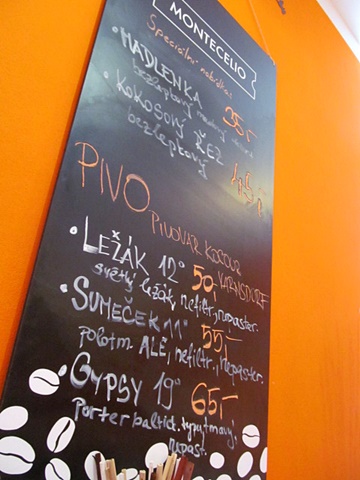 MONTECELIO
Speciální nabídka:
• MADLENKA
bezlepkový 35,-
• KOKOSOVÝ ŘEZ
bezlepkový 45,-
PIVO PIVOVAR KOCOUR
VARNSDORF
• LEŽÁK 12° 50,-
světlý ležák, nefiltr, nepaster.
• SUMEČEK 11° 55,-
polotm. ALE, nefiltr., nepaster.
• GYPSY 19° 65,-
Porter baltic. typ, tmavý,
nepast.